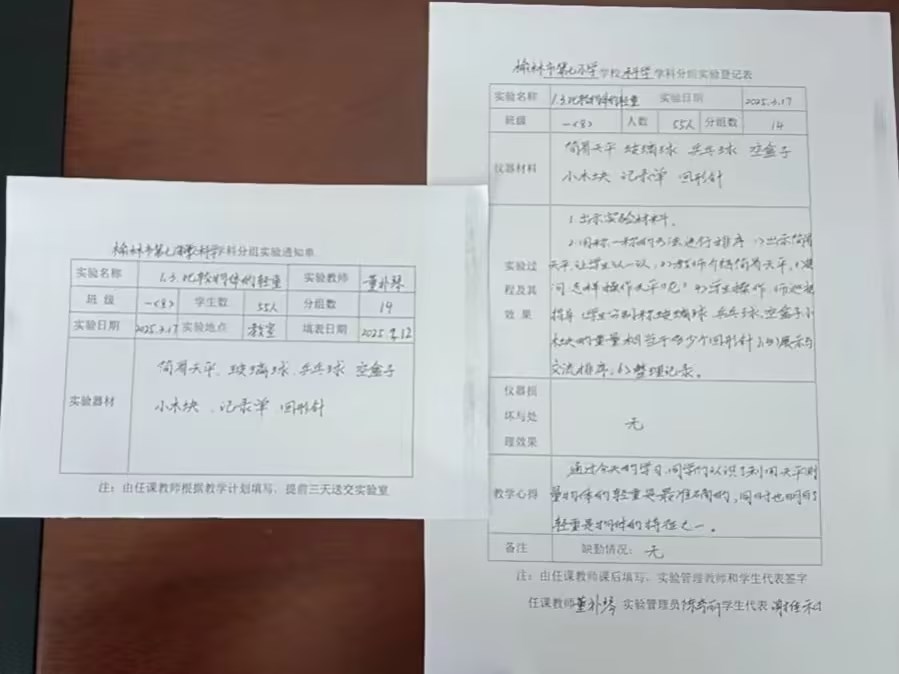 榆林市第七小学科学学科分组实验通知单
实验名称 1.3.比较物体的轻重 实验教师 董补琴
班 级 一<8> 学生数 55人 分组数 14
实验日期 2025.3.17 实验地点 教室 填表日期 2025.3.12
实验器材
简易天平、玻璃球、乒乓球 空盒子
小木块、记录单 回形针
注：由任课教师根据教学计划填写，提前三天送交实验室
榆林市第七小学学校科学学科分组实验登记表
实验名称 1.3比较物体的轻重 实验日期 2025.3.17
班级 一<8> 人数 55人 分组数 14
仪器材料
简易天平 玻璃球 乒乓球 空盒子
小木块 记录单 回形针
实验过
程及其
效 果
1.出示实验材料。
2.用称一称的办法进行排序 1)出示简易
天平,让学生认一认,2)教师介绍简易天平,3)提
问:怎样操作天平呢? 4)学生操作
指导(学生分别称玻璃球 乒乓球,空盒子,小
木块的重量相当于多少个回形针)5)展示与
交流排序,6)整理记录。
仪器损
坏与处
理效果
无
教学心得
通过今天的学习,同学们认识到用天平测
量物体的轻重是最准确的,同时也明白
轻重是物体的特征之一。
备注 缺勤情况：无
注：由任课教师课后填写，实验管理教师和学生代表签字
任课教师董补琴 实验管理员 学生代表